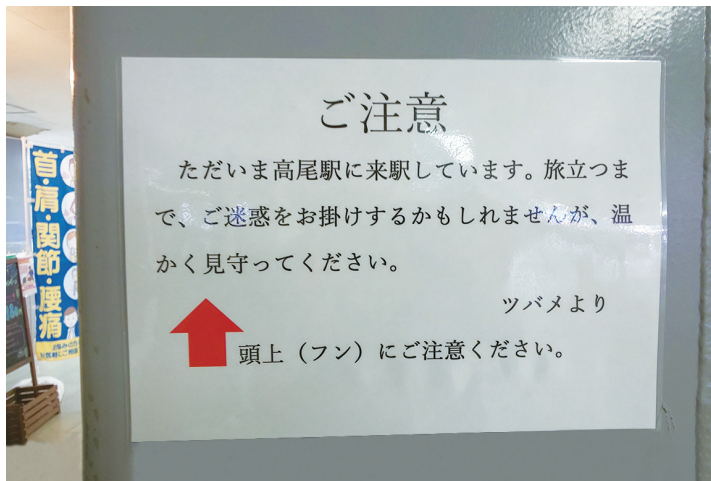 ご注意
ただいま高尾駅に来駅しています。旅立つま
で、ご迷惑をお掛けするかもしれませんが、温
かく見守ってください。
ツバメより
頭上（フン）にご注意ください。
首・肩・関節・腰痛